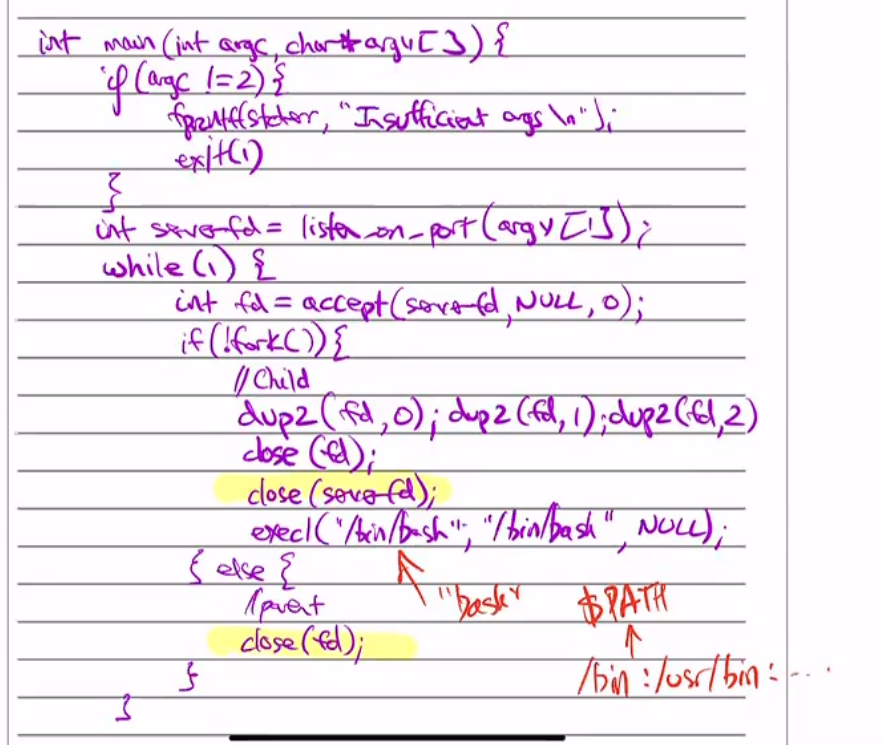 int main(int argc, char* argv[]) {
if(argc !=2) {
fprintf(stderr, "Insufficient args \n");
exit(1)
}
int server_fd = listen_on_port(argv[1]);
while(1) {
int fd = accept(server_fd, NULL, 0);
if(!fork()) {
//Child
dup2(fd,0); dup2(fd,1);dup2(fd,2)
close(fd);
close(server_fd);
execl("/bin/bash", "/bin/bash", NULL);
} else {
//parent
"bash" $PATH
close(fd);
} /bin:/usr/bin:....
}